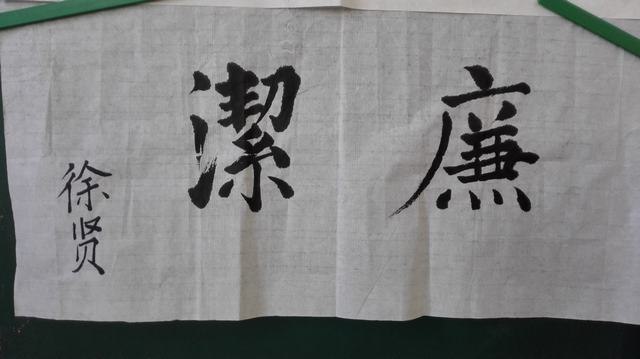 廉潔
徐贤